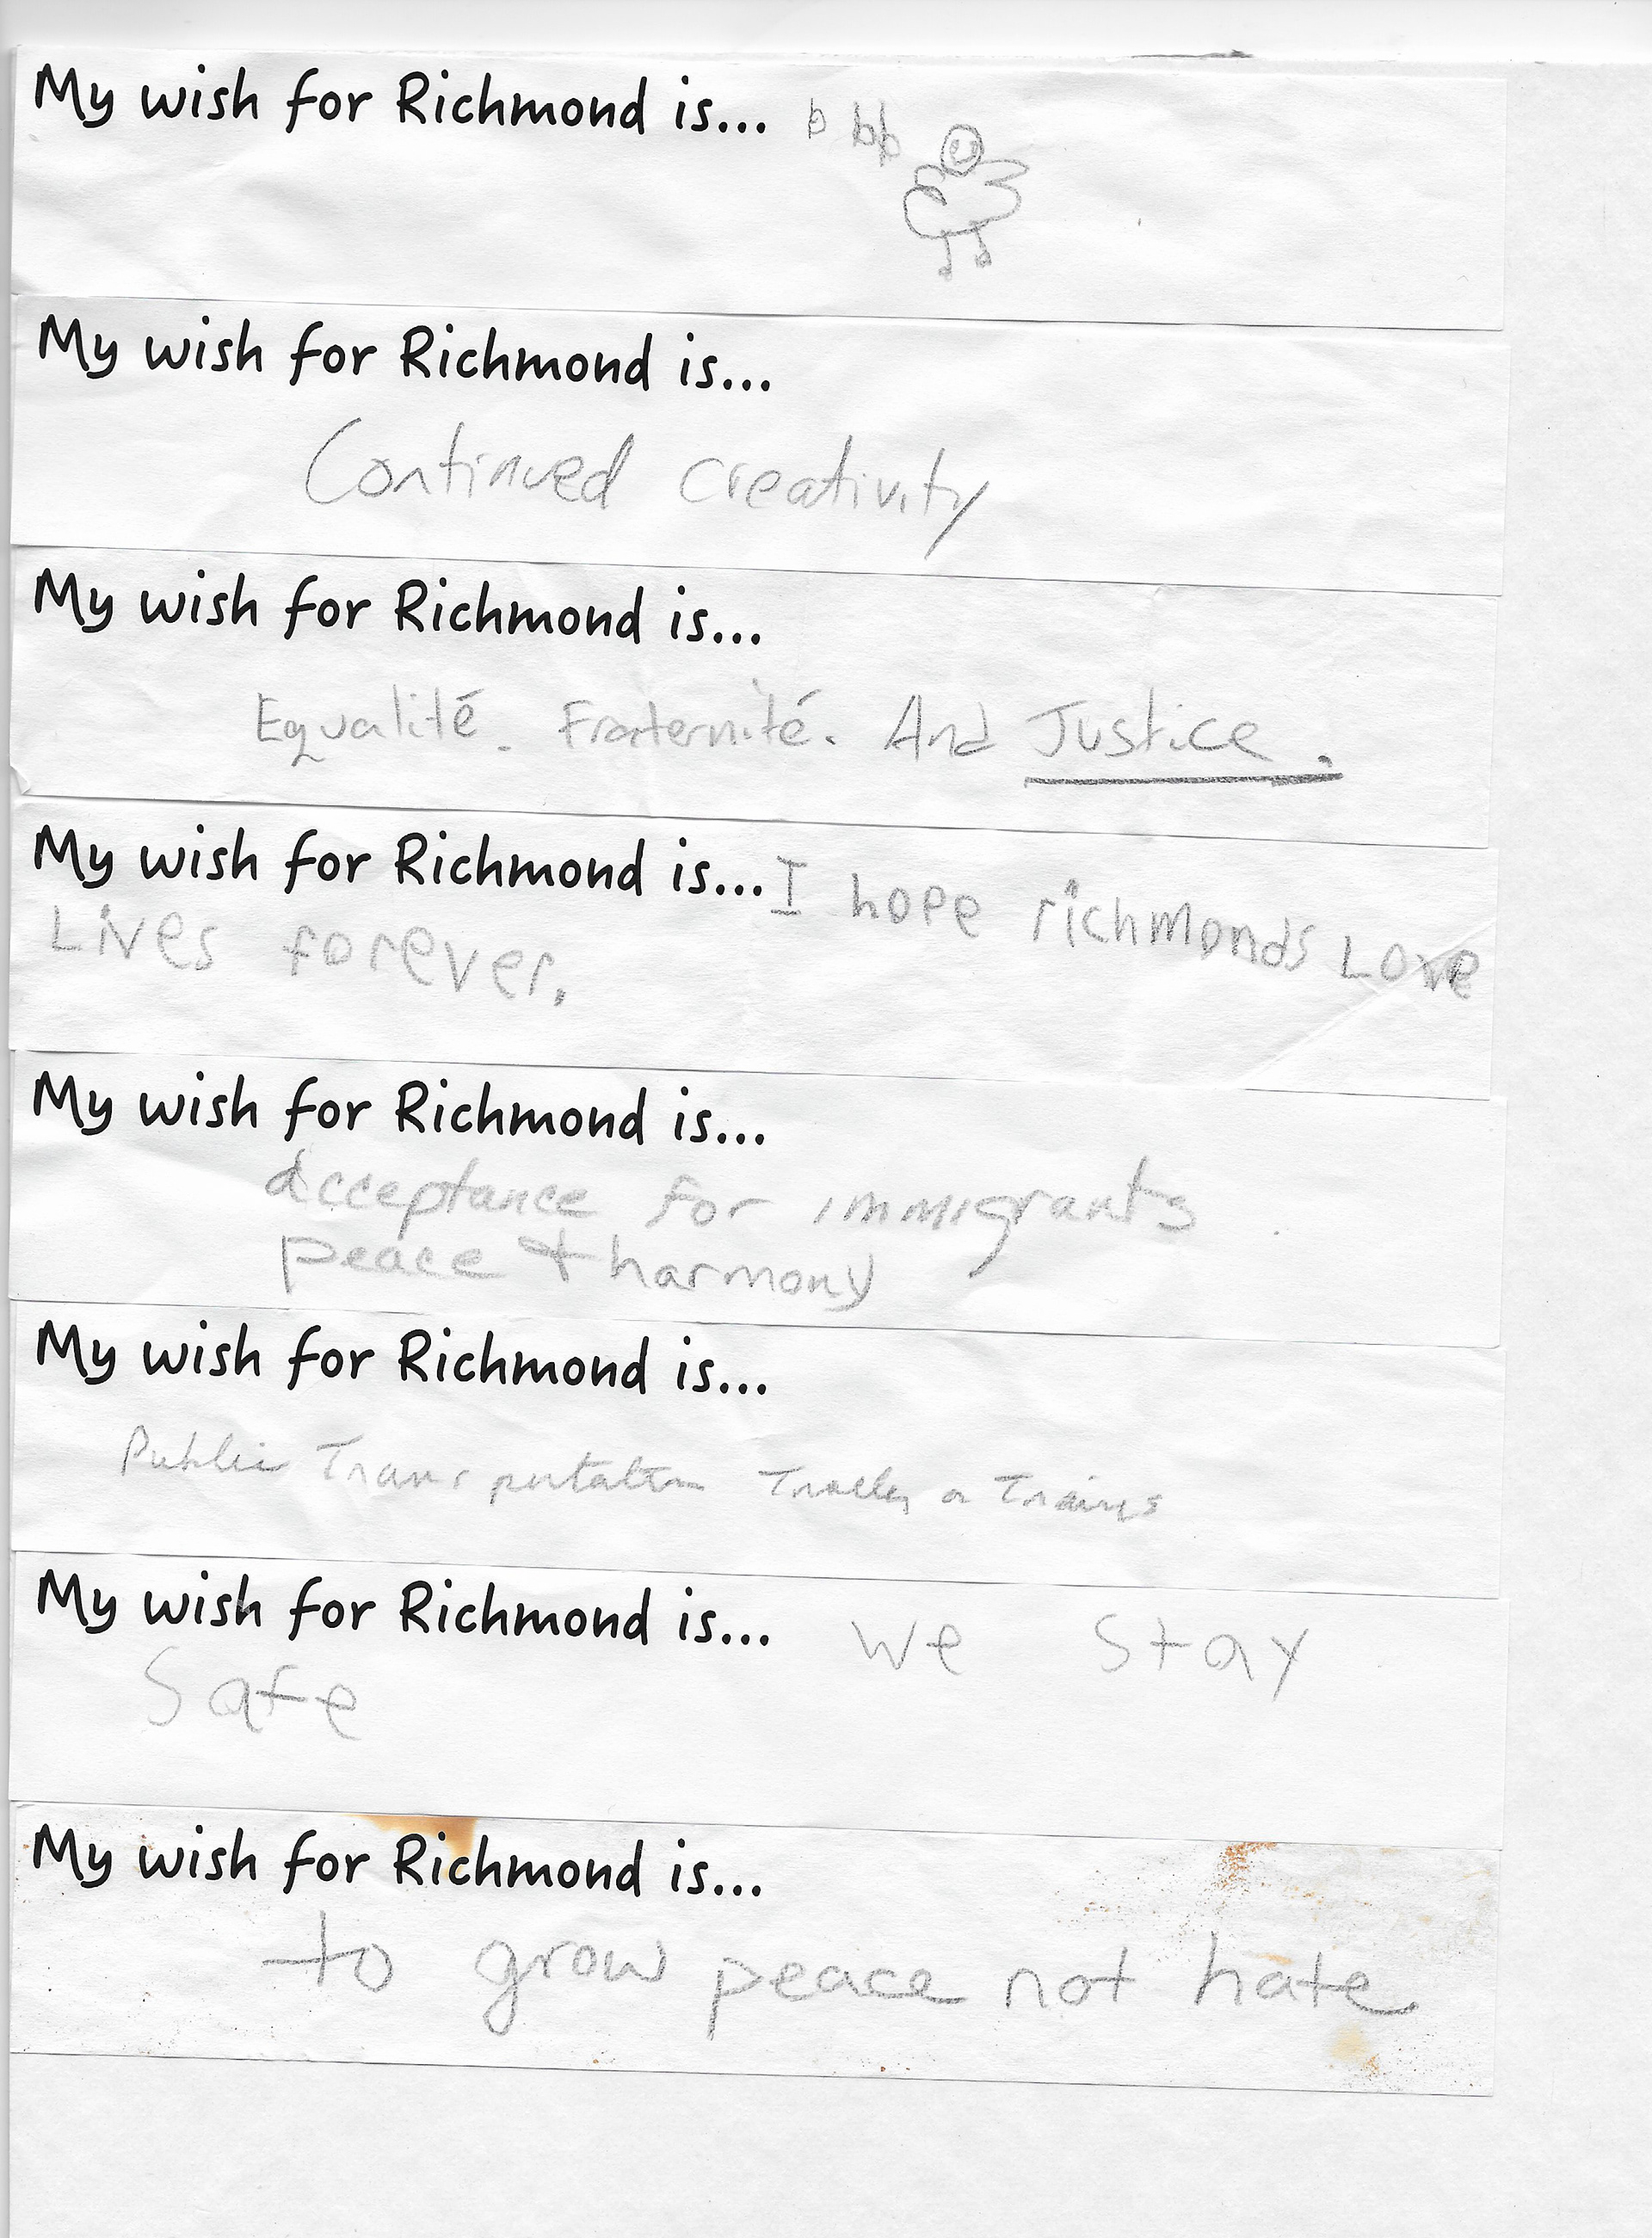 My wish for Richmond is... b bb
My wish for Richmond is...
Continued creativity
My wish for Richmond is...
Equalité. Fraternité. And Justice.
My wish for Richmond is... I hope richmonds Love
Lives forever.
My wish for Richmond is...
acceptance for immigrants
peace + harmony
My wish for Richmond is...
Public Transportation Trolley or Trains
My wish for Richmond is... We Stay
Safe
My wish for Richmond is...
to grow peace not hate